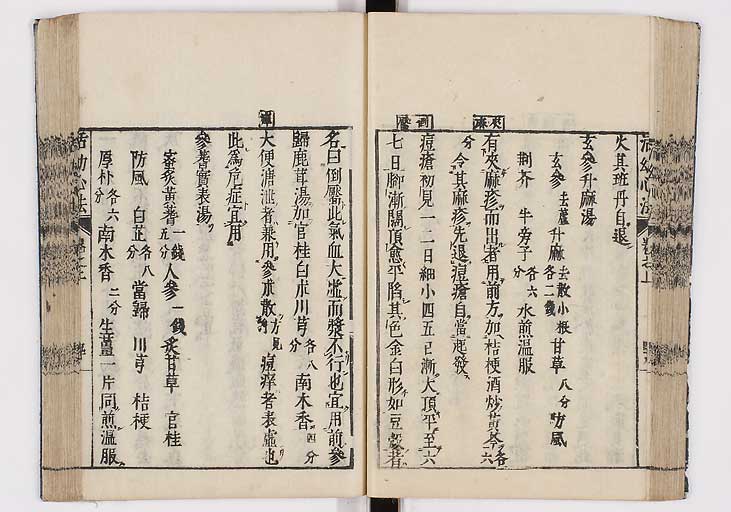 火其班丹自退
玄參升麻湯
玄參去蘆升麻去散小根各二錢甘草八分防風
荊芥 牛旁子各六分 水煎溫服
夾麻
有夾麻疹而出者用前方加桔梗酒炒黃芩各六
分 令其麻疹先退痘瘡自當起發
倒靨
痘瘡初見一二日細小四五日漸大頂平至六
七日腳漸闊頂愈平陷其色金白形如豆殼者
名曰倒靨此氣血大虛而漿不行也宜用前參
歸鹿茸湯加官桂白朮川芎各八分 南木香四分
大便溏泄者兼用參朮散方見 痘痒者表虛也
此為危症宜用
參耆實表湯
蜜炙黃耆一錢五分人參一錢炙甘草 官桂
防風 白芷各八分當歸 川芎 桔梗
厚朴各六分 南木香二分 生薑一片同煎溫服
活幼心法